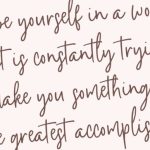 be yourself in a wo
t is constantly tryi
make you something
e greatest accomplis